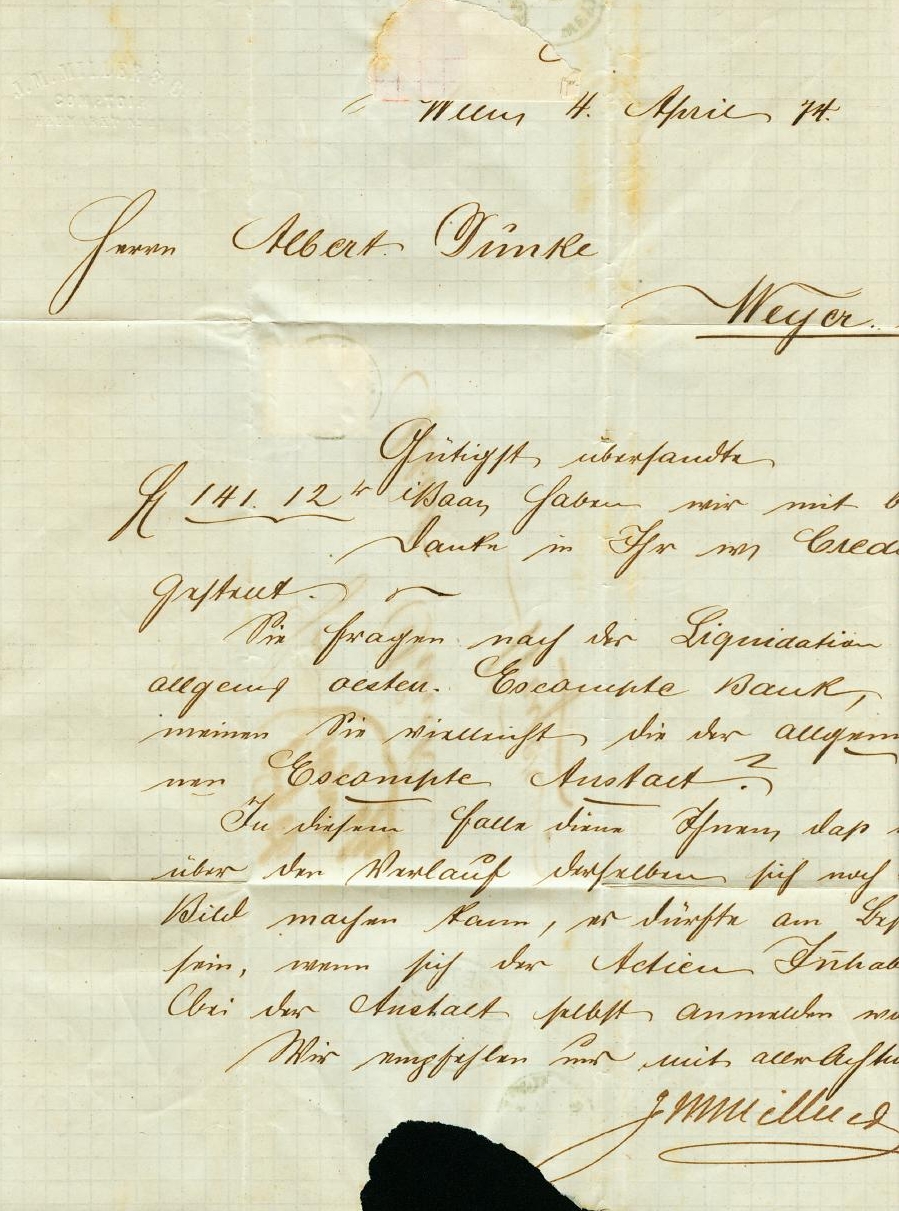 Wien, 4. April 74.
Herrn Albert Dunke
Weyer.
Gütigst übersandte
fl 141. 12 kr Baar haben wir mit b
Danke in Ihr Cred
gestellt.
Sie fragen nach der Liquidation
allgem oesterr. Escompte Bank,
meinen Sie vielleicht die der allgem
nen Escompte Anstalt?
In diesem Falle diene Ihnen, daß
über den Verlauf derselben sich noch
Bild machen kann, es dürfte am Bes
sein, wenn sich der Actien Inhab
bei der Anstalt selbst anmelden
Wir empfehlen uns mit aller Achtu